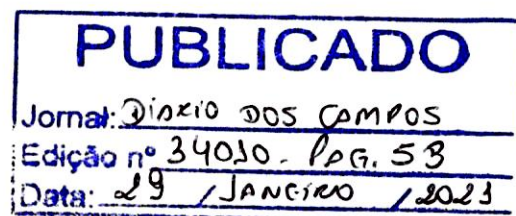 PUBLICADO
Jornal: DIÁRIO DOS CAMPOS
Edição nº 34010 - PAG. 5B
Data: 29 / JANEIRO / 2021